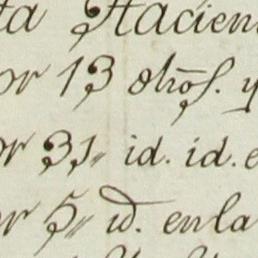 ta Hacien
or 13 otros. y
or 31,, id. id. e
or 5,, id. en la